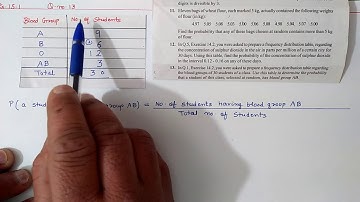 Ex 15.1 Q.no. 13
Blood Group No. of Students
A 9
B 6
O 12
AB 3
Total 30
digits is divisible by 3.
11. Eleven bags of wheat flour, each marked 5 kg, actually contained the following weights
of flour (in kg):
4.97 5.05 5.08 5.03 5.00 5.06 5.08 4.98 5.04 5.07 5.00
Find the probability that any of these bags chosen at random contains more than 5 kg
of flour.
12. In Q.5, Exercise 14.2, you were asked to prepare a frequency distribution table, regarding
the concentration of sulphur dioxide in the air in parts per million of a certain city for
30 days. Using this table, find the probability of the concentration of sulphur dioxide
in the interval 0.12 - 0.16 on any of these days.
13. In Q.1, Exercise 14.2, you were asked to prepare a frequency distribution table regarding
the blood groups of 30 students of a class. Use this table to determine the probability
that a student of this class, selected at random, has blood group AB.
P( a stud group AB) = No. of students having blood group AB
Total no of students